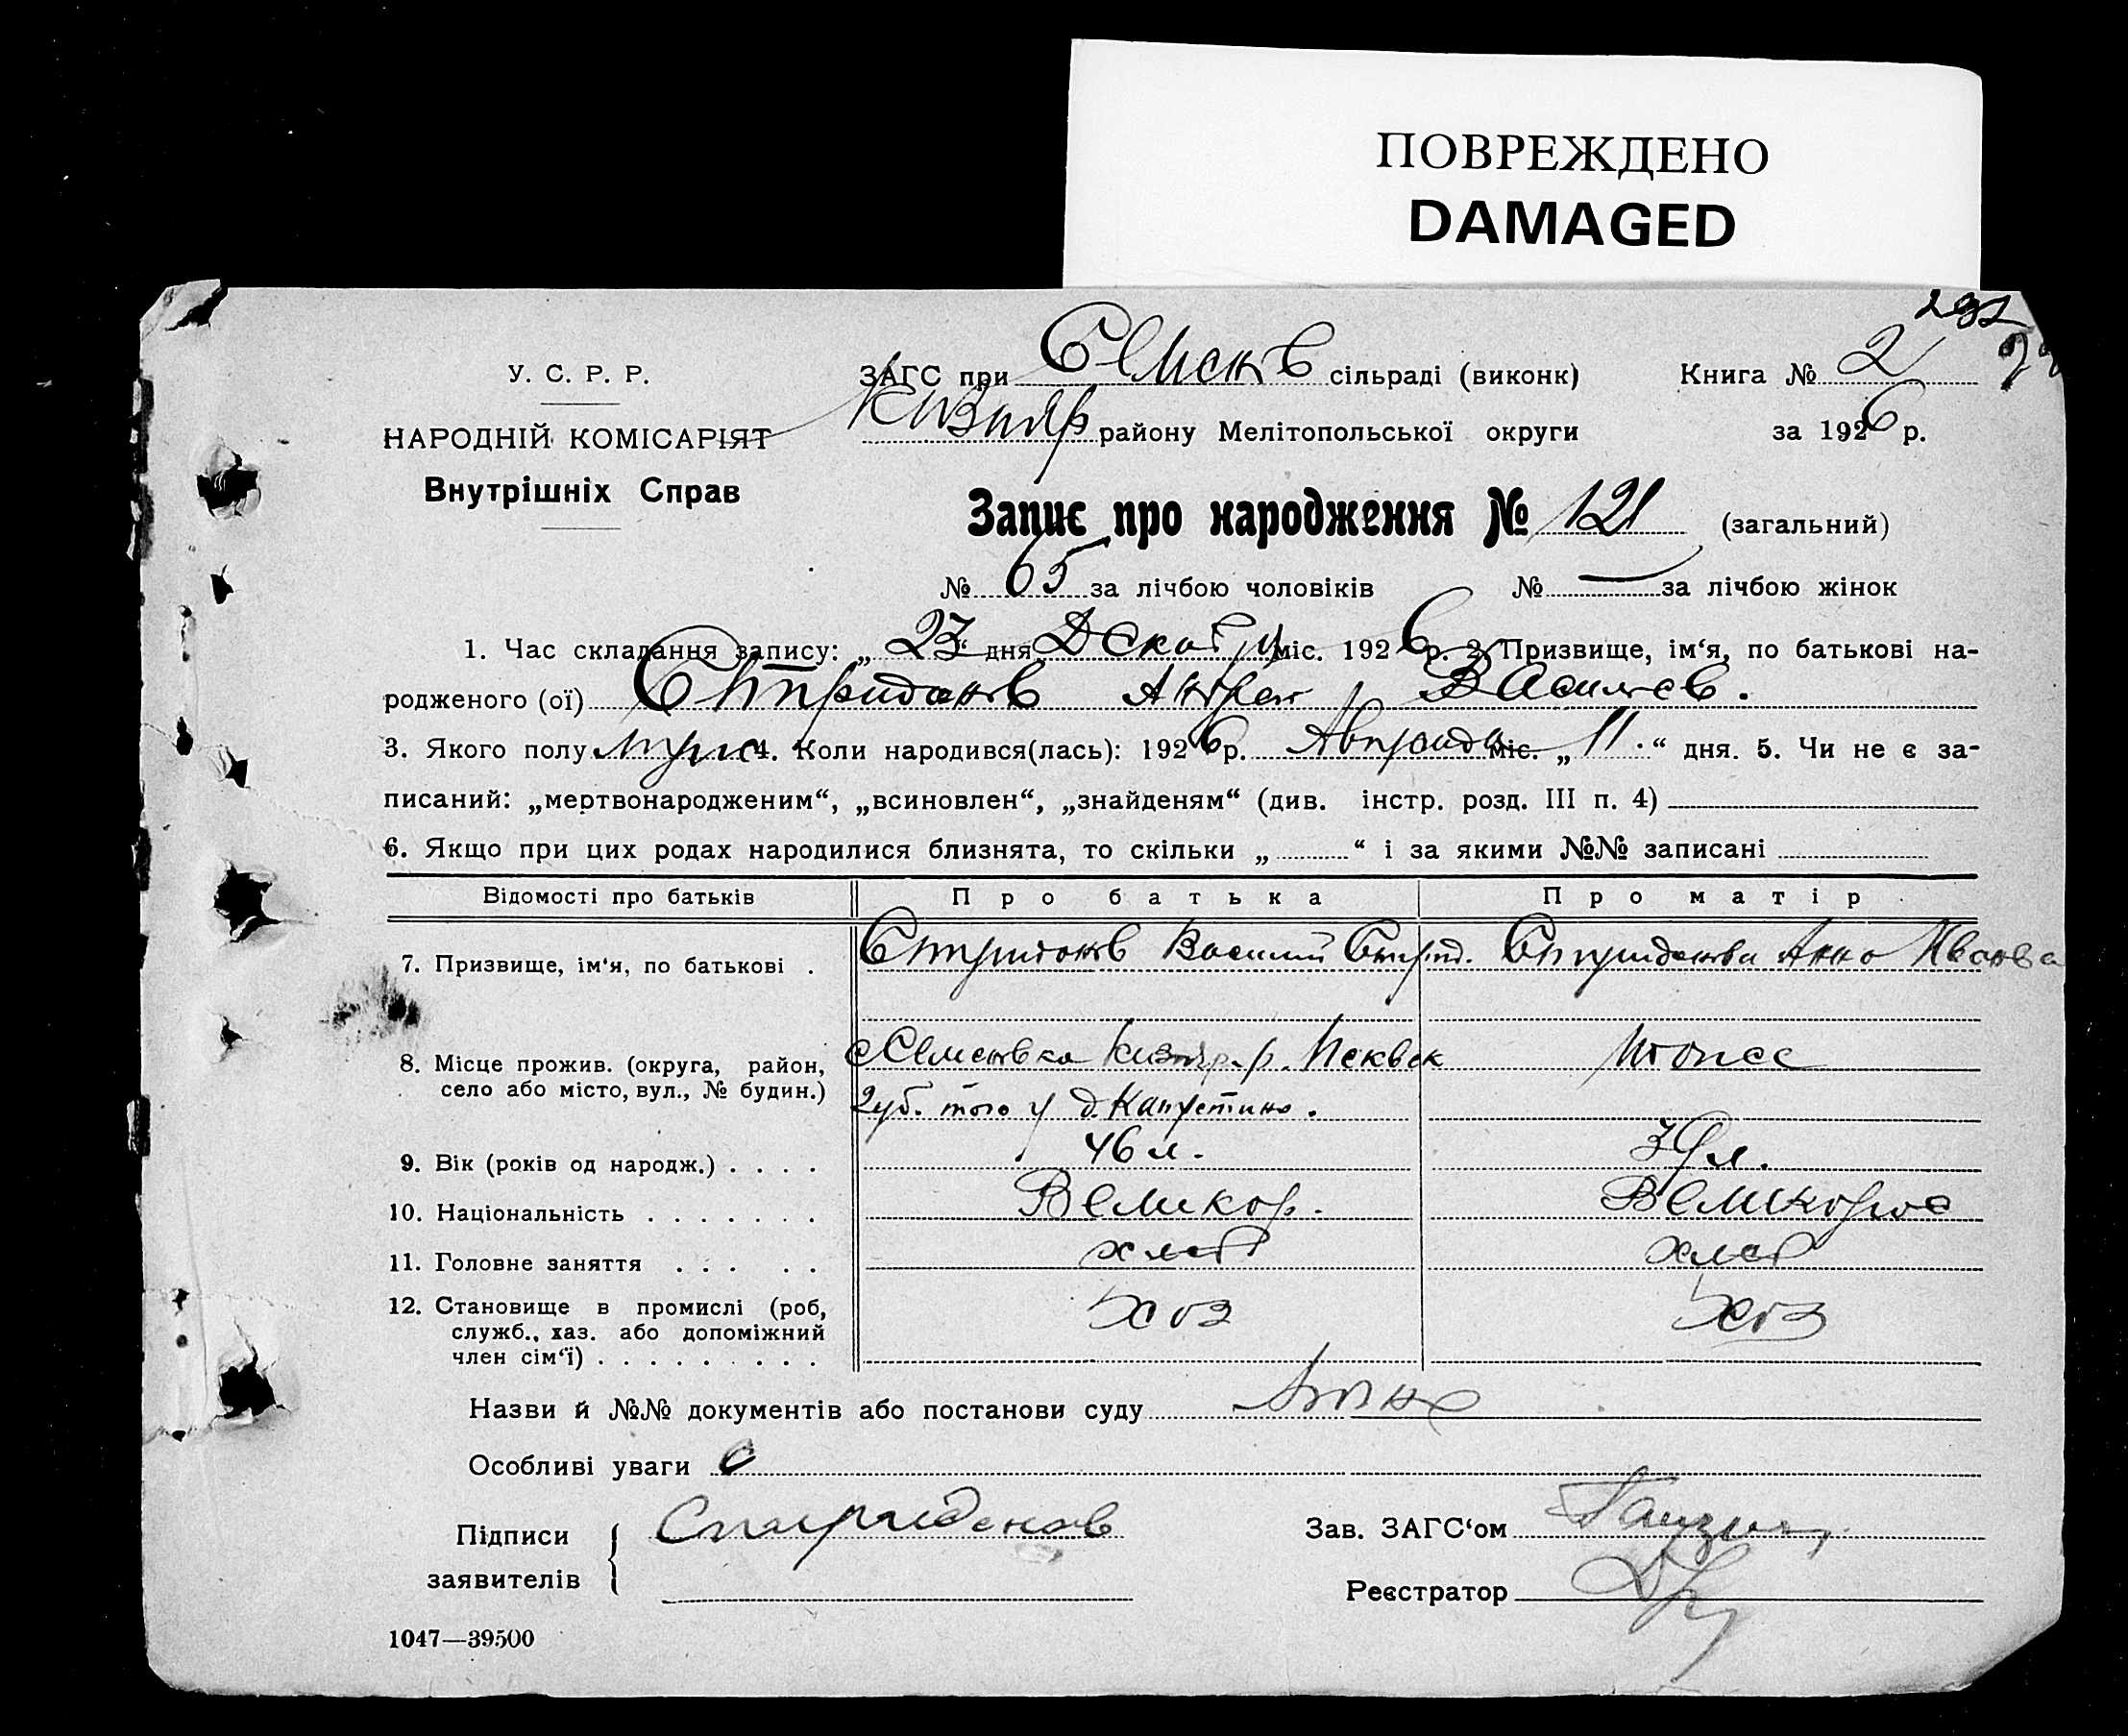 ПОВРЕЖДЕНО
DAMAGED
292
У. С. Р. Р.
НАРОДНІЙ КОМІСАРІЯТ
Внутрішніх Справ
ЗАГС при Семенів сільраді (виконк) Книга № 2
Кизияр району Мелітопольської округи за 1926 р.
Запис про народження № 121 (загальний)
№ 65 за лічбою чоловіків № — за лічбою жінок
1. Час складання запису: „ 23 “ дня Декабр міс. 1926 р. 2. Призвище, ім‘я, по батькові на-
родженого (ої) Спиридонов Андрей Васильев.
3. Якого полу муж 4. Коли народився(лась): 1926 р. міс. „ 11 “ дня. 5. Чи не є за-
писаний: „мертвонародженим“, „всиновлен“, „знайденям“ (див. інстр. розд. III п. 4)
6. Якщо при цих родах народилися близнята, то скільки „ “ і за якими №№ записані
Відомості про батьків Про батька Про матір
7. Призвище, ім‘я, по батькові . Спиридонов Василий Спирид. Спиридонова Анна Иванова
8. Місце прожив. (округа, район, с Семеновка Кизияр. р. тоже
село або місто, вул., № будин.) губ. того у д. Капустино.
9. Вік (років од народж.) . . . . 46 л. 39 л.
10. Національність . . . . . . . Великор. Великорос
11. Головне заняття . . . . . хлеб хлеб
12. Становище в промислі (роб, хоз хоз
служб., хаз. або допоміжний
член сім‘ї) . . . . . . . . .
Назви й №№ документів або постанови суду
Особливі уваги
Підписи Спиридонов Зав. ЗАГС‘ом
заявителів Реєстратор
1047—39500